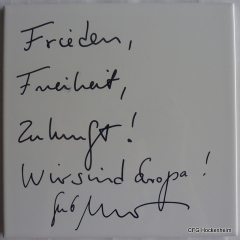 Frieden,
Freiheit,
Zukunft!
Wir sind Europa!
CFG Hockenheim